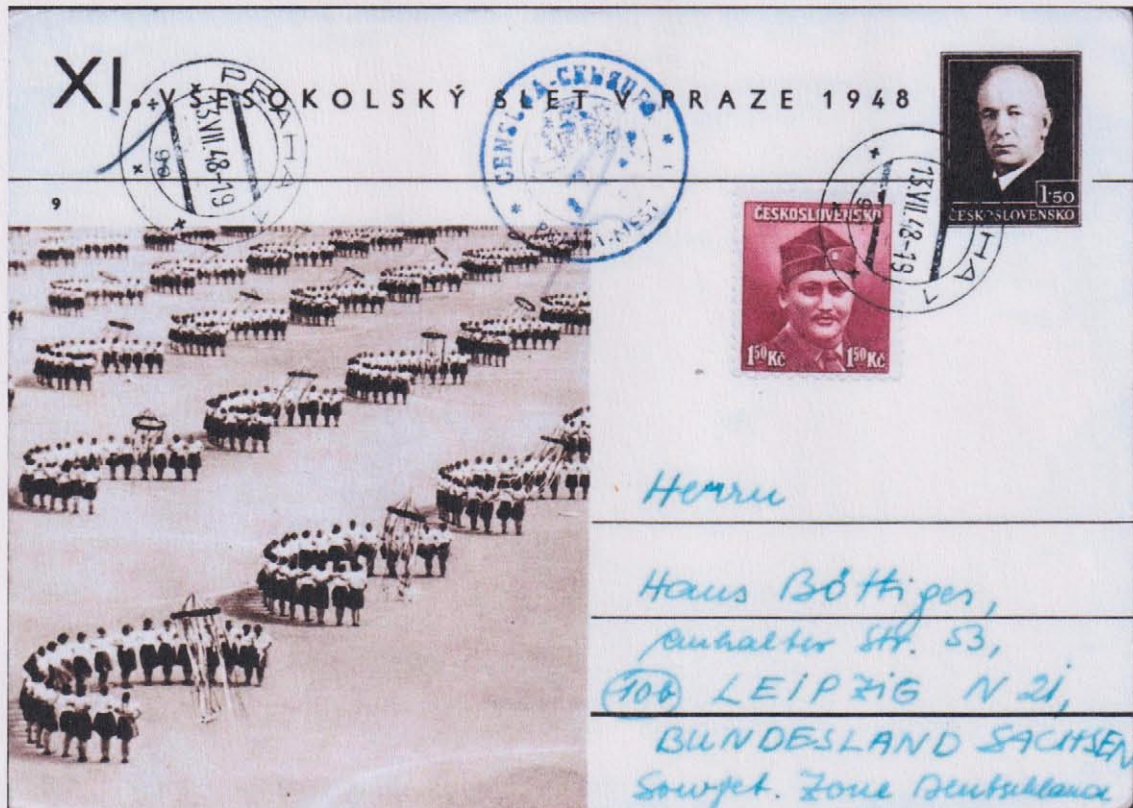 XI. VŠESOKOLSKÝ SLET V PRAZE 1948
PRAHA 1
13.VII.48-19
CENSURA
PRAHA 1
13.VII.48-19
1·50
ČESKOSLOVENSKO
9
ČESKOSLOVENSKO
1⁵⁰Kč 1⁵⁰Kč
Herrn
Hans Böttiger,
Anhalter Str. 53,
(10b) LEIPZIG N 21,
BUNDESLAND SACHSEN
Sowjet. Zone Deutschland